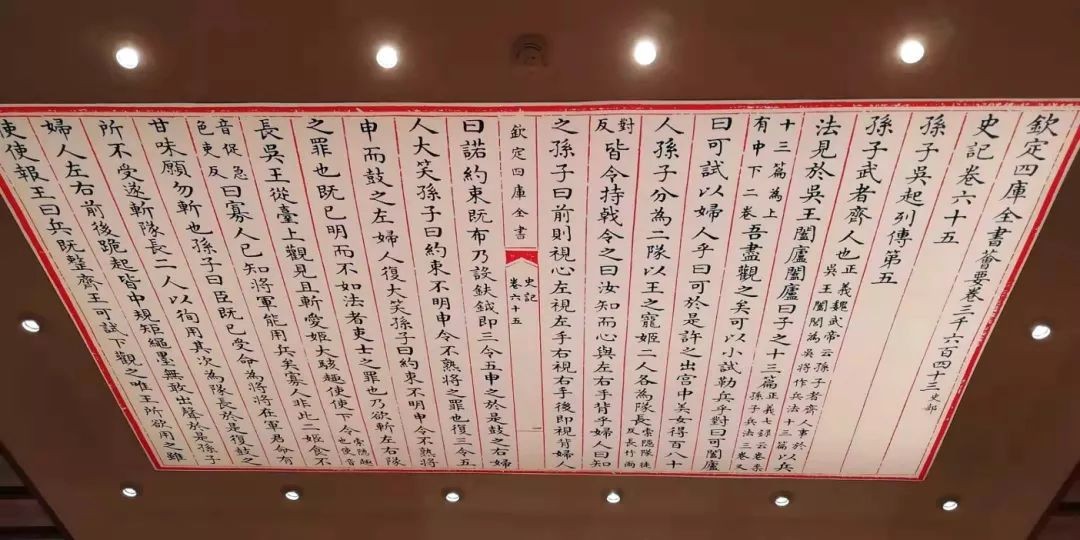 欽定四庫全書薈要卷三千六百四十三史部
史記卷六十五
孫子吳起列傳第五
孫子武者齊人也正義魏武帝云孫子者齊人事於吳王闔閭為吳將作兵法十三篇以兵
法見於吳王闔廬闔廬曰子之十三篇正義七録云孫子兵法三卷案
十三篇為上卷又有中下二卷吾盡觀之矣可以小試勒兵乎對曰可闔廬
曰可試以婦人乎曰可於是許之出宫中美女得百八十
人孫子分為二隊以王之寵姬二人各為隊長索隱隊徒對反長竹兩
反皆令持戟令之曰汝知而心與左右手背乎婦人曰知
之孫子曰前則視心左視左手右視右手後即視背婦人
欽定四庫全書
史記
卷六十五
曰諾約束既布乃設鈇鉞即三令五申之於是鼓之右婦
人大笑孫子曰約束不明申令不熟將之罪也復三令五
申而鼓之左婦人復大笑孫子曰約束不明申令不熟將
之罪也既已明而不如法者吏士之罪也乃欲斬左右隊
長吳王從臺上觀見且斬愛姬大駭趣使使下令也索隱趣音促急
色吏反曰寡人已知將軍能用兵矣寡人非此二姬食不
甘味願勿斬也孫子曰臣既已受命為將將在軍君命有
所不受遂斬隊長二人以徇用其次為隊長於是復鼓之
婦人左右前後跪起皆中規矩繩墨無敢出聲於是孫子
使使報王曰兵既整齊王可試下觀之唯王所欲用之雖